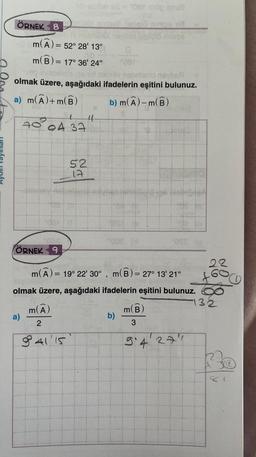 ÖRNEK - 8
m(Â) = 52° 28' 13"
m(B̂) = 17° 36' 24"
olmak üzere, aşağıdaki ifadelerin eşitini bulunuz.
a) m(Â) + m(B̂) b) m(Â) – m(B̂)
70° 04' 37"
52
17
ÖRNEK - 9
m(Â) = 19° 22' 30" , m(B̂) = 27° 13' 21"
olmak üzere, aşağıdaki ifadelerin eşitini bulunuz.
a) m(Â)
2
b) m(B̂)
3
9° 41' 15"
9° 4' 27"
22
+60
132